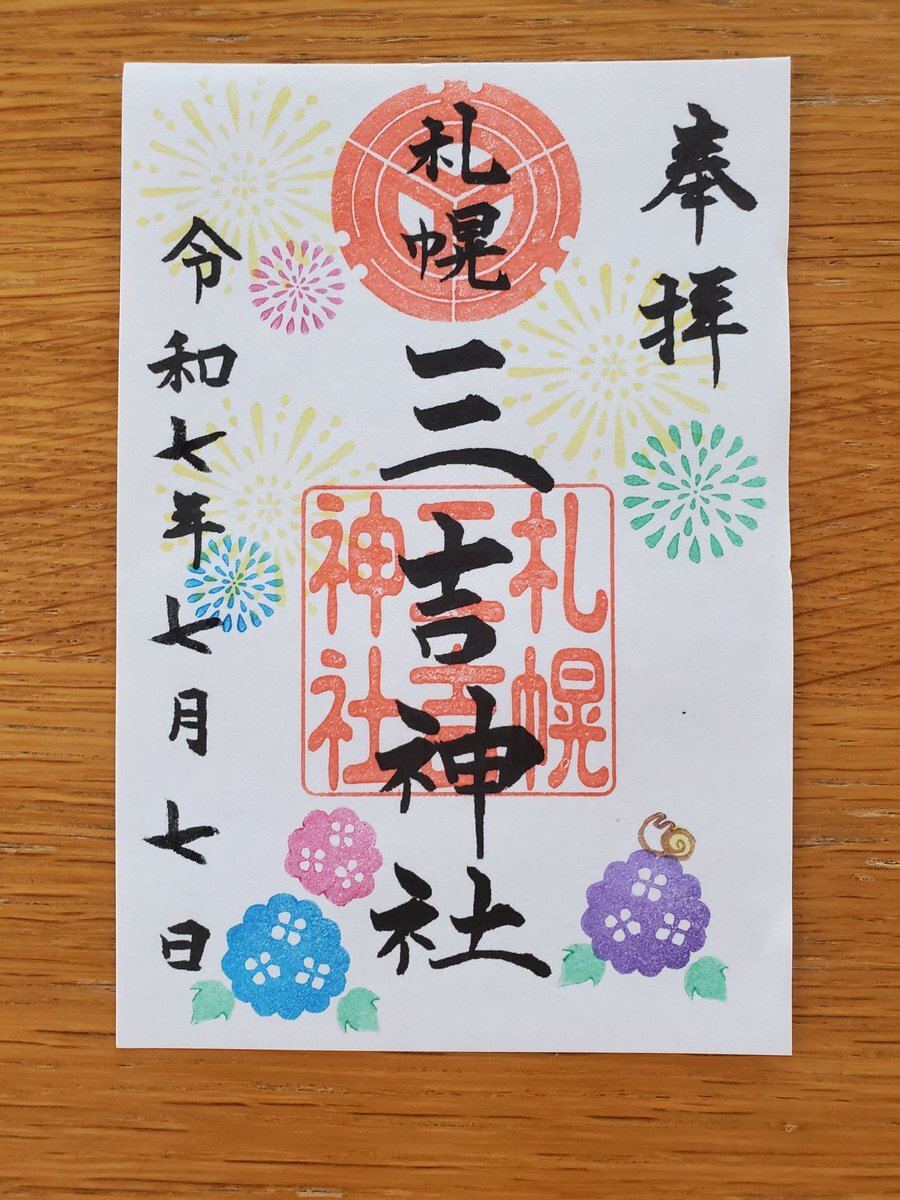 奉拝
札幌
三吉神社
札幌
三吉
神社
令和七年七月七日